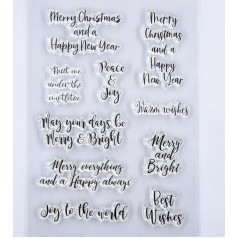 Merry Christmas
and a
Happy New Year
Merry
Christmas
and a
Happy
New Year
Meet me
under the
mistletoe
Peace
&
Joy
Warm wishes
May your days be
Merry & Bright
Merry
and
Bright
Merry everything
and a Happy always
Best
Wishes
Joy to the world